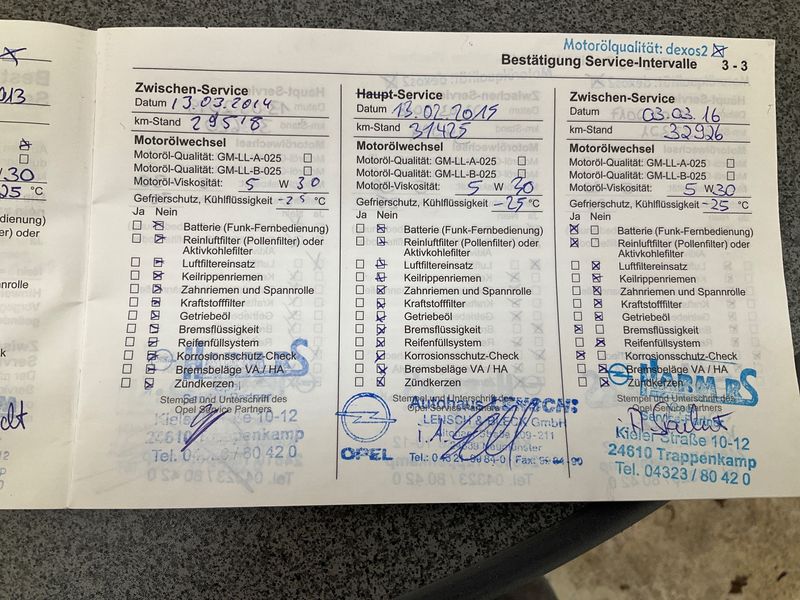 013
30
25 °C
dienung)
r) oder
inrolle
Motorölqualität: dexos2
Bestätigung Service-Intervalle 3 - 3
Zwischen-Service
Datum 13.03.2014
km-Stand 29518
Motorölwechsel
Motoröl-Qualität: GM-LL-A-025
Motoröl-Qualität: GM-LL-B-025
Motoröl-Viskosität: 5 W 30
Gefrierschutz, Kühlflüssigkeit -25 °C
Ja Nein
Batterie (Funk-Fernbedienung)
Reinluftfilter (Pollenfilter) oder
Aktivkohlefilter
Luftfiltereinsatz
Keilrippenriemen
Zahnriemen und Spannrolle
Kraftstofffilter
Getriebeöl
Bremsflüssigkeit
Reifenfüllsystem
Korrosionsschutz-Check
Bremsbeläge VA / HA
Zündkerzen
Stempel und Unterschrift des
Opel Service Partners
10-12
24610 Trappenkamp
Tel. 04323 / 80 42 0
Haupt-Service
Datum 13.02.2015
km-Stand 31425
Motorölwechsel
Motoröl-Qualität: GM-LL-A-025
Motoröl-Qualität: GM-LL-B-025
Motoröl-Viskosität: 5 W 30
Gefrierschutz, Kühlflüssigkeit -25 °C
Ja Nein
Batterie (Funk-Fernbedienung)
Reinluftfilter (Pollenfilter) oder
Aktivkohlefilter
Luftfiltereinsatz
Keilrippenriemen
Zahnriemen und Spannrolle
Kraftstofffilter
Getriebeöl
Bremsflüssigkeit
Reifenfüllsystem
Korrosionsschutz-Check
Bremsbeläge VA / HA
Zündkerzen
Stempel und Unterschrift des
Opel Service Partners
Autohaus
GmbH
i.A.
OPEL
Zwischen-Service
Datum 03.03.16
km-Stand 32926
Motorölwechsel
Motoröl-Qualität: GM-LL-A-025
Motoröl-Qualität: GM-LL-B-025
Motoröl-Viskosität: 5 W 30
Gefrierschutz, Kühlflüssigkeit -25 °C
Ja Nein
Batterie (Funk-Fernbedienung)
Reinluftfilter (Pollenfilter) oder
Aktivkohlefilter
Luftfiltereinsatz
Keilrippenriemen
Zahnriemen und Spannrolle
Kraftstofffilter
Getriebeöl
Bremsflüssigkeit
Reifenfüllsystem
Korrosionsschutz-Check
Bremsbeläge VA / HA
Zündkerzen
Stempel und Unterschrift des
Opel Service Partners
Kieler Straße 10-12
24610 Trappenkamp
Tel. 04323 / 80 42 0